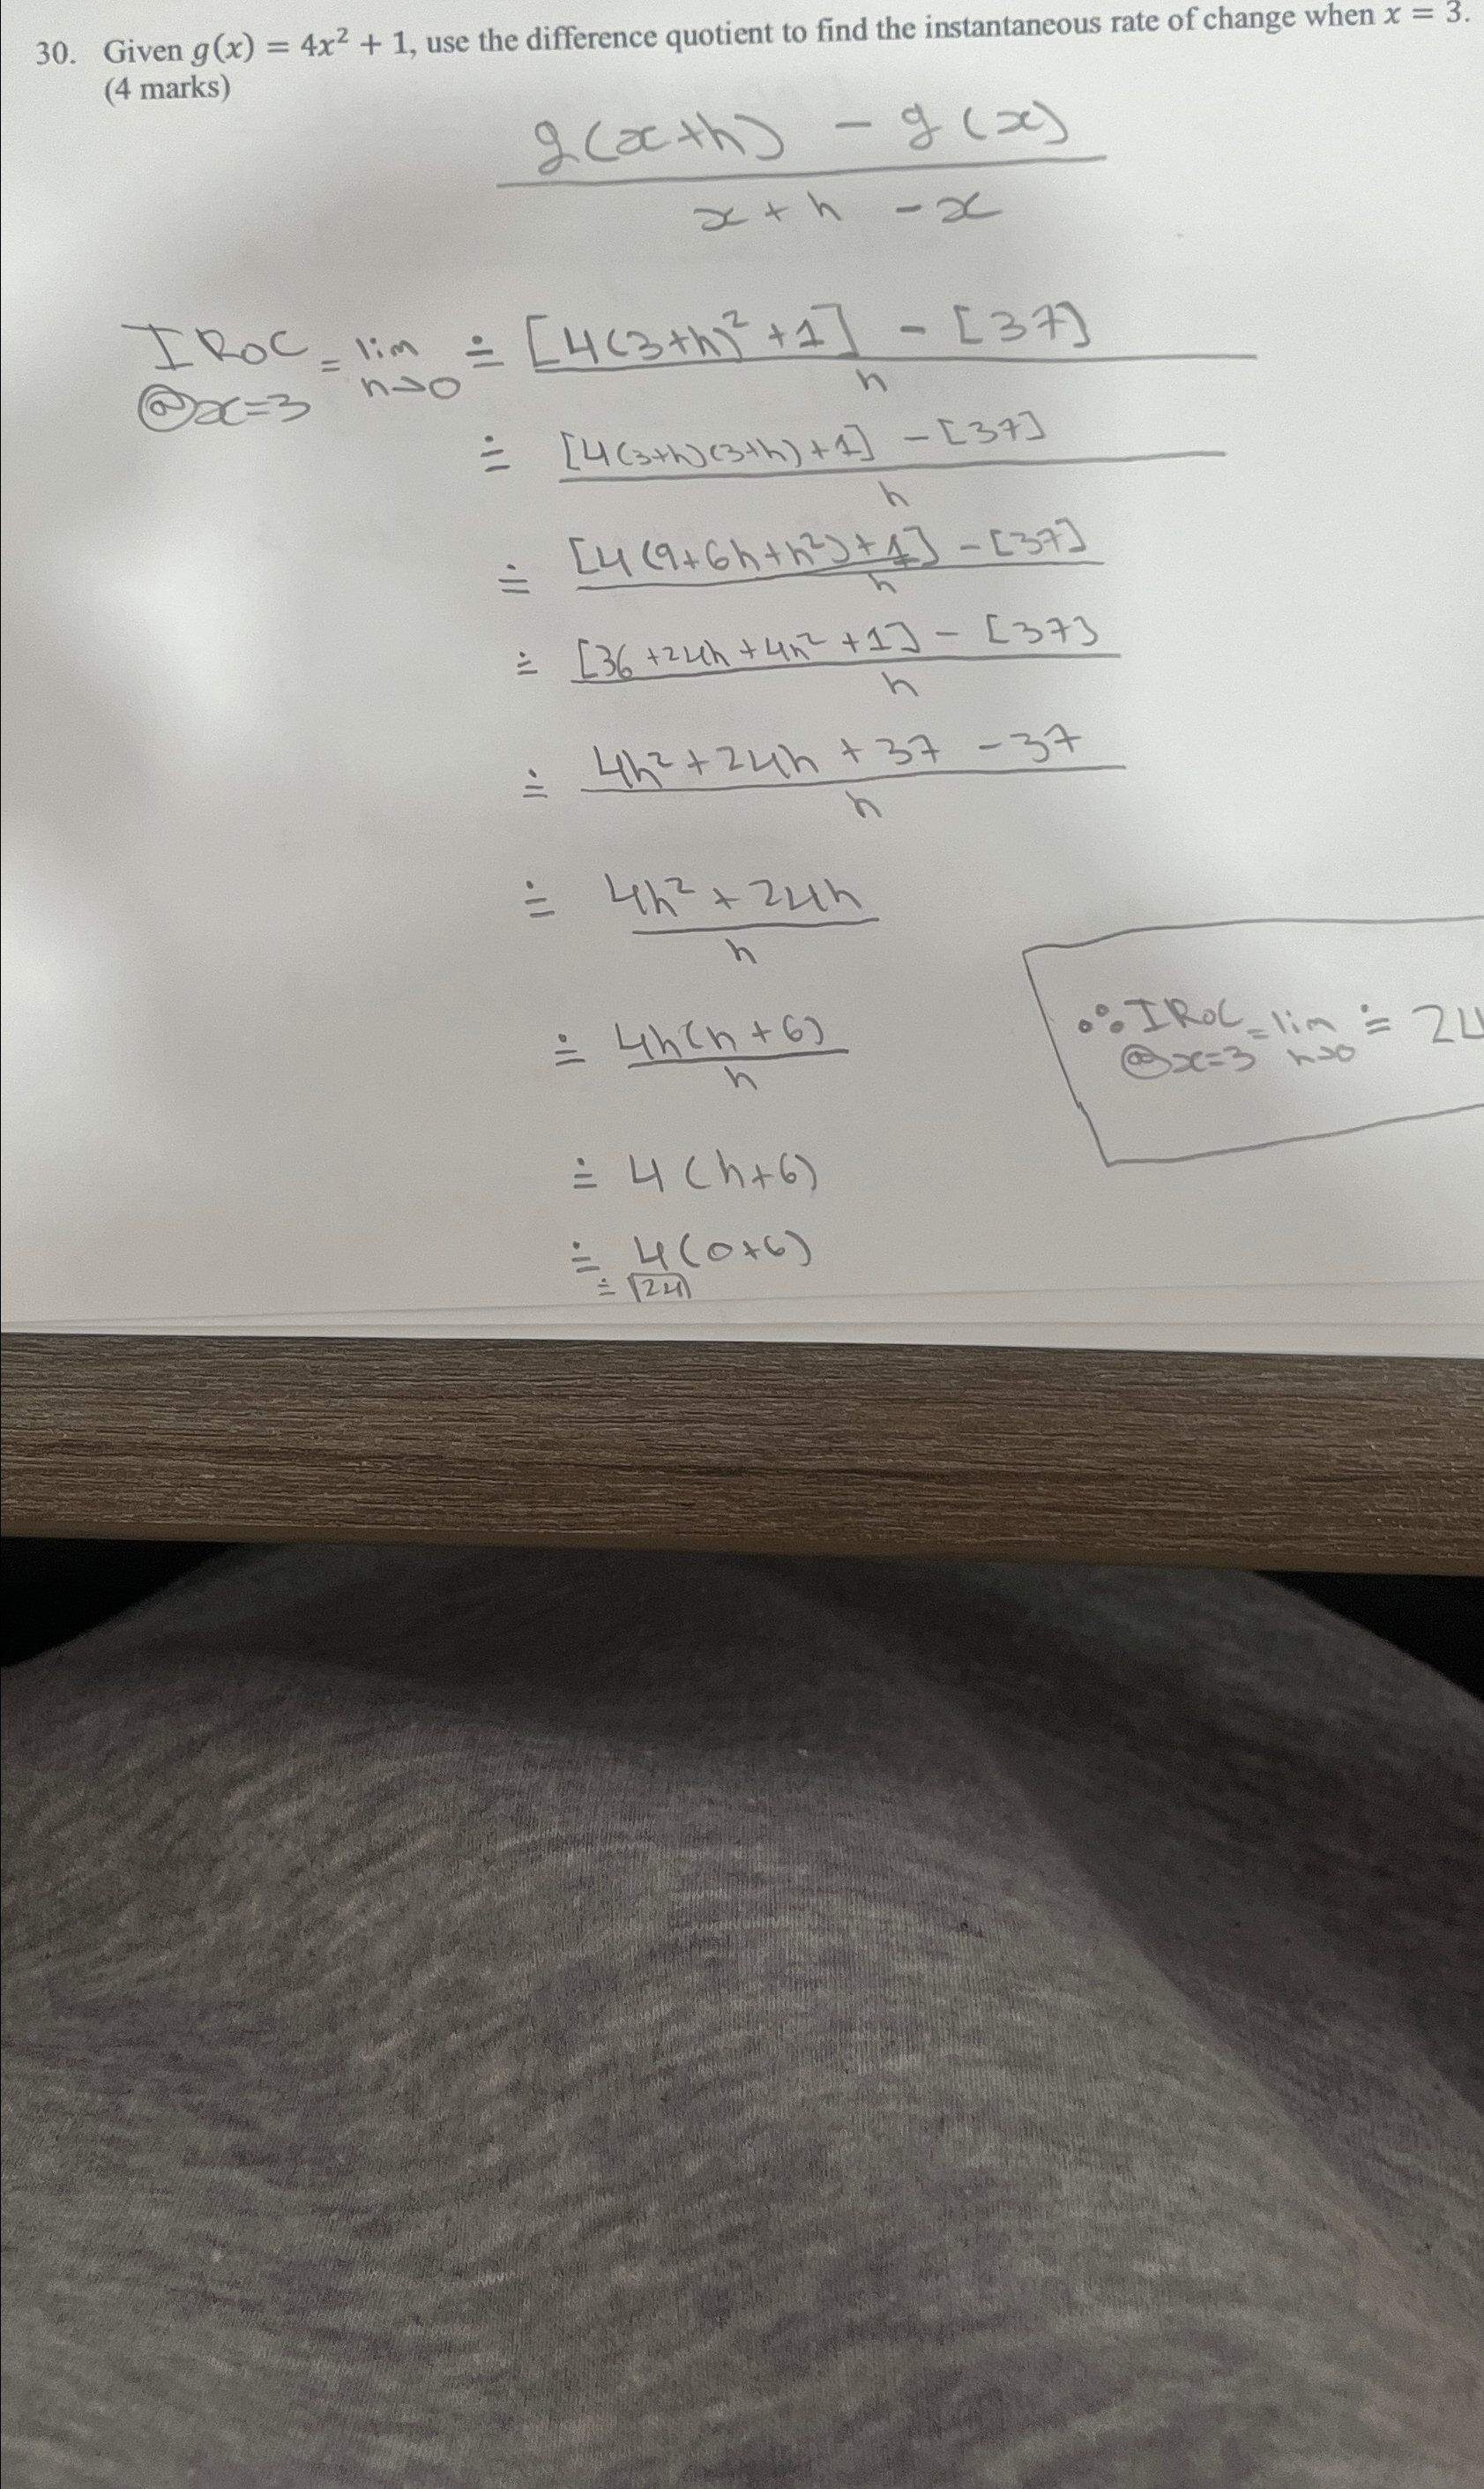 30. Given g(x) = 4x² + 1, use the difference quotient to find the instantaneous rate of change when x = 3.
(4 marks)
g(x+h) - g(x)
x+h -x
IRoC = lim ≐ [4(3+h)²+1] - [37]
@x=3 h→0 h
≐ [4(3+h)(3+h)+1] - [37]
h
≐ [4(9+6h+h²)+1] - [37]
h
≐ [36+24h+4h²+1] - [37]
h
≐ 4h²+24h+37-37
h
≐ 4h²+24h
h
≐ 4h(h+6)
h
∴ IRoC = lim ≐ 24
@x=3 h→0
≐ 4(h+6)
≐ 4(0+6)
≐ 24